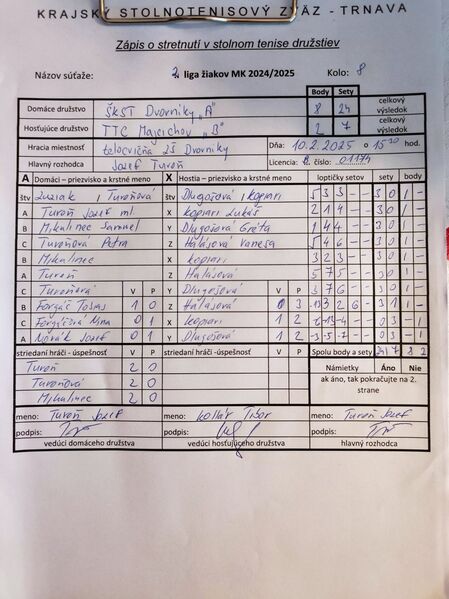 KRAJSKÝ STOLNOTENISOVÝ ZVÄZ - TRNAVA
Zápis o stretnutí v stolnom tenise družstiev
Názov súťaže: 2. liga žiakov MK 2024/2025 Kolo: 8
Body Sety
Domáce družstvo ŠKST Dvorníky „A" 8 24 celkový výsledok
Hosťujúce družstvo TTC Majcichov „B" 2 7 celkový výsledok
Hracia miestnosť telocvičňa ZŠ Dvorníky Dňa: 10.2.2025 o 15:30 hod.
Hlavný rozhodca Jozef Turoň Licencia: číslo: 01174
A Domáci – priezvisko a krstné meno X Hostia – priezvisko a krstné meno loptičky setov sety body
štv Turoňová štv Dlugošová, kopiari 5 3 3 - - 3 0 1 -
A Turoň Jozef ml. X kopiari Lukáš 2 1 4 - - 3 0 1 -
B Mikulinec Samuel Y Dlugošová Gréta 1 4 4 - - 3 0 1 -
C Turoňová Petra Z Halásová Vanesa 5 4 6 - - 3 0 1 -
B Mikulinec X kopiari 3 2 3 - - 3 0 1 -
A Turoň Z Halásová 5 7 5 - - 3 0 1 -
C Turoňová V P Y Dlugošová V P 3 7 6 - - 3 0 1 -
B Forgáč Tobias 1 0 Z Halásová 0 3 3 2 6 - 3 1 1 -
C Forgáčová Nina 0 1 X kopiari 1 2 0 3 - 1
A Novák Jozef 0 1 Y Dlugošová 1 2 -3 -5 -7 - - 0 3 - 1
striedaní hráči - úspešnosť V P striedaní hráči - úspešnosť V P Spolu body a sety 24 7 8 2
Turoň 2 0 Námietky Áno Nie
Turoňová 2 0 ak áno, tak pokračujte na 2. strane
Mikulinec 2 0
meno: Turoň Jozef meno: Kollár Tibor meno: Turoň Jozef
podpis: podpis: podpis:
vedúci domáceho družstva vedúci hosťujúceho družstva hlavný rozhodca